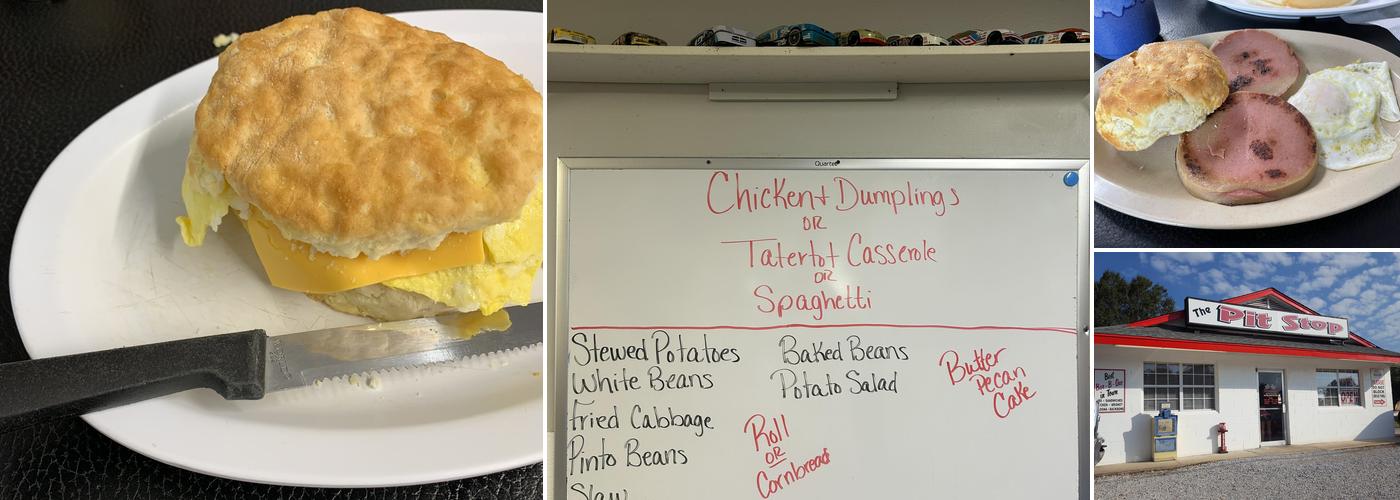 Quartet
Chicken + Dumplings
OR
Tatertot Casserole
OR
Spaghetti
Stewed Potatoes
White Beans
Fried Cabbage
Pinto Beans
Slaw
Baked Beans
Potato Salad
Roll
OR
Cornbread
Butter
Pecan
Cake
The Pit Stop
Best
Bar-B-Que
in Town
OPEN